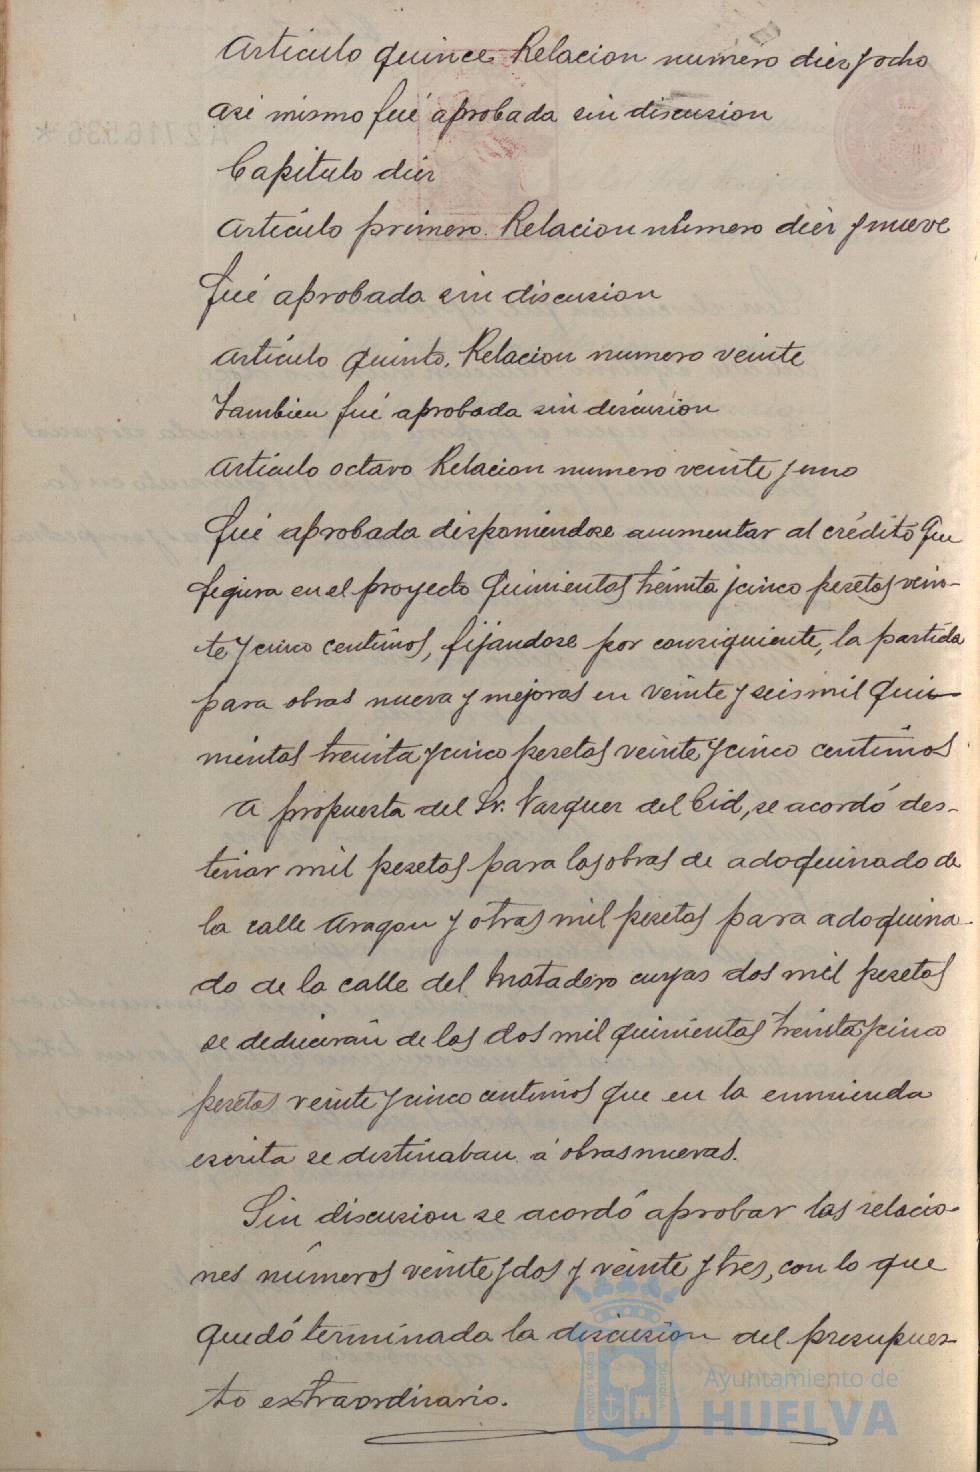 Artículo quince. Relacion numero diez y ocho
asi mismo fué aprobada sin discusion
Capitulo diez
Artículo primero. Relacion número diez y nueve
fué aprobada sin discusion
Artículo quinto. Relacion numero veinte
tambien fué aprobada sin discusion
Artículo octavo Relacion numero veinte y uno
fué aprobada disponiendose aumentar al crédito que
figura en el proyecto quinientas treinta y cinco pesetas vein-
te y cinco centimos, fijandose por consiguiente, la partida
para obras nueva y mejoras en veinte y seis mil qui-
nientas treinta y cinco pesetas veinte y cinco centimos
A propuesta del Sr. Vazquez del Cid, se acordó des-
tinar mil pesetas para las obras de adoquinado de
la calle Aragon y otras mil pesetas para adoquina-
do de la calle del Matadero cuyas dos mil pesetas
se deducirán de las dos mil quinientas treinta y cinco
pesetas veinte y cinco centimos que en la enmienda
escrita se destinaban á obras nuevas.
Sin discusion se acordó aprobar las relacio-
nes números veinte y dos y veinte y tres, con lo que
quedó terminada la discusion del presupues-
to extraordinario.
Ayuntamiento de
HUELVA